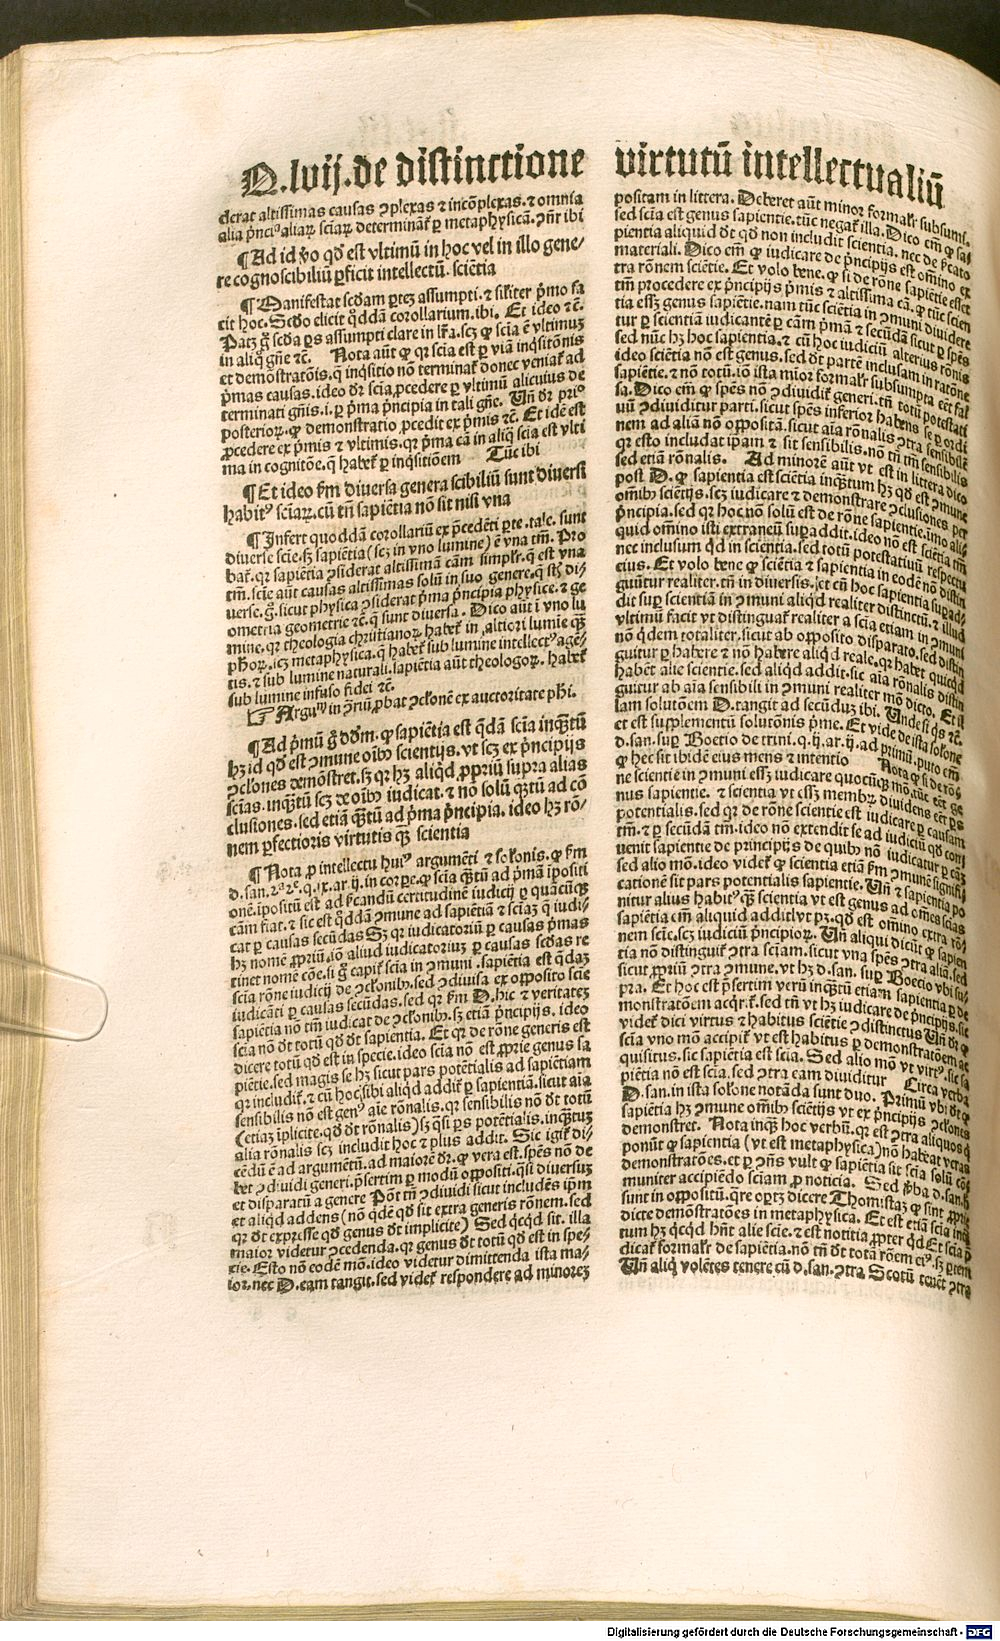 Q. lvij. de distinctione virtutū intellectualiū
derat altissimas causas ↄplexas ⁊ incōplexas. ⁊ omnia
¶ Ad id ꝟo qd̄ est vltimū in hoc vel in illo gene/
re cognoscibiliū ꝑficit intellectū. sciētia
¶ Manifestat scd̄am ꝑtē assumpti. ⁊ sil̄iter p̄mo fa
cit hoc. Scd̄o elicit q̄ddā corollarium. ibi. Et ideo ⁊c̄.
in aliq̄ gn̄e ⁊c̄. Nota aūt ꝙ qꝛ scia est ꝑ viā inq̄sitōnis
et demōstratōis. q̄ inq̄sitio nō terminat̄ donec veniat̄ ad
p̄mas causas. ideo dr̄ scia ꝓcedere ꝑ vltimū alicuius de
terminati gn̄is. i. ꝑ p̄ma p̄ncipia in tali gn̄e. Vn̄ dr̄ prio
posterioꝝ. ꝙ demonstratio ꝓcedit ex p̄mis ⁊c̄. Et idē est
ꝓcedere ex p̄mis ⁊ vltimis. qꝛ p̄ma cā in aliq̄ scia est vlti
ma in cognitōe. q̄ habet̄ ꝑ inq̄sitiōem Tūc ibi
¶ Et ideo ẜm diuersa genera scibiliū sunt diuersi
habitꝰ sciaꝝ. cū tn̄ sapiētia nō sit nisi vna
¶ Infert quoddā corollariū ex p̄cedēti ꝑte. tale. sunt
diuerse scie. sꝫ sapiētia (scꝫ in vno lumine) ē vna tm̄. Pro
bat̄. qꝛ sapiētia ↄsiderat altissimā cām simplr̄. q̄ est vna
tm̄. scie aūt causas altissimas solū in suo genere. q̄ st̄ di/
uerse. g̊. sicut physica ↄsiderat p̄ma p̄ncipia physice. ⁊ ge
ometria geometrie ⁊c̄. q̄ sunt diuersa. Dico aūt ī vno lu
mine. qꝛ theologia christianoꝝ habet̄ in altiori lumie qꝫ
ph̄oꝝ. scꝫ metaphysica. q̄ habet̄ sub lumine intellectꝰ agē/
tis. ⁊ sub lumine naturali. sapiētia aūt theologoꝝ. habet̄
sub lumine infuso fidei ⁊c̄.
☞ Argum̄ in ↄ̄riū ꝓbat ↄclōnē ex auctoritate ph̄i.
¶ Ad p̄mū g̊ dd̄m. ꝙ sapiētia est q̄dā scia inq̄ȝtū
hꝫ id qd̄ est ↄmune oībꝰ scientijs. vt scꝫ ex p̄ncipijs
ↄclones demōstret. sꝫ qꝛ hꝫ aliqd̄ ꝓpriū supra alias
scias. inq̄ȝtū scꝫ de oībꝰ iudicat. ⁊ nō solū q̄ȝtū ad cō
clusiones. sed etiā q̄ȝtū ad p̄ma p̄ncipia. ideo hꝫ rō/
nem ꝑfectioris virtutis qꝫ scientia
¶ Nota ꝓ intellectu huiꝰ argumēti ⁊ solōnis. ꝙ ẜm
cām fiat. ⁊ sic est q̄ddā ↄmune ad sapiētiā ⁊ sciaꝫ q̄ iudi/
cat ꝑ causas secūdas Sꝫ qꝛ iudicatoriū ꝑ causas p̄mas
hꝫ nomē ꝓpriū. iō aliud iudicatoriuꝫ ꝑ causas scd̄as re
tinet nomē cōe. si g̊ capit̄ scia in ↄmuni. sapiētia est q̄daꝫ
scia rōne iudicij de ↄclōnibꝰ. sed ↄdiuisa ex opposito scie
iudicāti ꝑ causas secūdas. sed qꝛ ẜm D. hic ⁊ veritateꝫ
sapiētia nō tm̄ iudicat de ↄclōnibꝰ. sꝫ etiā p̄ncipijs. ideo
scia nō dt̄ totū qd̄ dt̄ sapientia. Et qꝛ de rōne generis est
dicere totū qd̄ est in specie. ideo scia nō est ꝓprie genus sa
piētie. sed magis se hꝫ sicut pars potētialis ad sapiētiam
sensibilis nō est genꝰ aīe rōnalis. qꝛ sensibilis nō dt̄ totū
(etiaꝫ īplicite. qd̄ dt̄ rōnalis) sꝫ q̄si ꝑs potētialis. inq̄ȝtuꝫ
alia rōnalis scꝫ includit hoc ⁊ plus addit. Sic igit̄ di/
cēdū ē ad argumētū. ad maiorē dr̄. ꝙ vera est. spēs nō de
bet ↄdiuidi generi. p̄sertim ꝑ modū oppositi. q̄si diuersuꝫ
et disparatū a genere Pōt tn̄ ↄdiuidi sicut includēs ip̄m
et aliqd̄ addens (nō q̄dē qd̄ sit extra generis rōnem. sed
qꝛ dt̄ expresse qd̄ genus dt̄ implicite) Sed q̄cqd̄ sit. illa
maior videtur ↄcedenda. qꝛ genus dt̄ totū qd̄ est in spe/
cie. Esto nō eodē mō. ideo videtur dimittenda ista ma/
ior. nec D. eam tangit. sed videt̄ respondere ad minoreꝫ
positam in littera. Deberet aūt minor formalr̄ subsumi.
sed scia est genus sapientie. tūc negat̄ illa. Dico em̄ ꝙ sa/
pientia aliquid dt̄ qd̄ non includit scientia. nec de p̄cato
materiali. Dico em̄ ꝙ iudicare de p̄ncipijs est om̄ino ex
tra rōnem sciētie. Et volo bene. ꝙ si de rōne sapiētie esset
tm̄ procedere ex p̄ncipijs p̄mis ⁊ altissima cā. ꝙ tūc scien
tia essꝫ genus sapiētie. nam tūc sciētia in ↄmuni diuidere
tur ꝑ scientiā iudicantē ꝑ cām p̄mā ⁊ secūdā sicut ꝑ spēs
sed nūc hꝫ hoc sapientia. ⁊ cū hoc iudiciū alterius rōnis
ideo sciētia nō est genus. sed dt̄ partē inclusam in ratōne
sapiētie. ⁊ nō totū. iō ista mior formalr̄ subsumpta eēt fal
sa. Dico em̄ ꝙ spēs nō ↄdiuidit̄ generi. tn̄ totū potestati
uū ↄdiuiditur parti. sicut spēs inferior habens se ꝑ ordi
nem ad aliā nō oppositā. sicut aīa rōnalis ↄtra sensibilē
qꝛ esto includat ipam ⁊ sit sensibilis. nō tn̄ tm̄ sensibilis
sed etiā rōnalis. Ad minorē aūt vt est in littera dico
post D. ꝙ sapientia est sciētia inq̄ȝtum hꝫ qd̄ est ↄmune
om̄ibꝰ sciētijs. scꝫ iudicare ⁊ demonstrare ↄclusiones per
p̄ncipia. sed qꝛ hoc nō solū est de rōne sapientie. imo ali/
quid om̄ino isti extraneū supaddit. ideo nō est sciētia tm̄
nec inclusum qd̄ in scientia. sed totū potestatiuū respectu
eius. Et volo bene ꝙ sciētia ⁊ sapientia in eodē nō distin
guūtur realiter. tn̄ in diuersis. sꝫ cū hoc sapientia supad/
dit sup sciētiam in ↄmuni aliqd̄ realiter distinctū. ⁊ illud
vltimū facit vt distinguat̄ realiter a scia etiam in ↄmuni
nō q̄dem totaliter. sicut ab opposito disparato. sed distin
guitur ꝑ habere ⁊ nō habere aliqd̄ reale. qꝛ habet quicqd̄
habēt alie scientie. sed aliqd̄ addit. sic aīa rōnalis distin
guitur ab aīa sensibili in ↄmuni realiter mō dicto. Et il
lam solutōem D. tangit ad secūduꝫ ibi. Unde si q̄s ⁊c̄.
et est supplementū solutōnis p̄me. Et vide de ista solōne
d. san. sup Boetio de trini. q. ij. ar. ij. ad primū. puto em̄
ꝙ hec sit ibidē eius mens ⁊ intentio Nota ꝙ si de rō/
ne scientie in ↄmuni essꝫ iudicare quocūqꝫ mō. tūc eēt ge
nus sapientie. ⁊ scientia vt essꝫ membꝝ diuidens eēt ꝑs
potentialis. sed qꝛ de rōne scientie est iudicare ꝑ causam
tm̄. ⁊ ꝑ secūdā tm̄. ideo nō extendit se ad iudiciū qd̄ con/
uenit sapientie de principijs de quibꝰ nō iudicatur ꝑ cāꝫ
sed alio mō. ideo videt̄ ꝙ scientia etiā ẜm ↄmunē signifi
cationē sit pars potentialis sapientie. Vn̄ ⁊ sapientia po
nitur alius habitꝰ qꝫ scientia vt est genus ad om̄es scias
sapiētia em̄ aliquid addit. vt pꝫ. qd̄ est om̄ino extra rō/
nem scie. scꝫ iudiciū p̄ncipioꝝ. Vn̄ aliqui dicūt ꝙ sapien
tia nō distinguit̄ ↄtra sciam. sicut vna spēs ↄtra aliā. sed
sicut ꝓpriū ↄtra ↄmune. vt hꝫ d. san. sup Boecio vbi su/
pra. Et hoc est p̄sertim verū inq̄ȝtū etiam sapientia ꝑ de
monstratōem acq̄rit̄. sed tn̄ vt hꝫ iudicare de p̄ncipijs. sic
videt̄ dici virtus ⁊ habitus sciētie ↄdistinctus Vn̄ dr̄ ꝙ
scia vno mō accipit̄ vt est habitus ꝑ demonstratōem ac
quisitus. sic sapiētia est scia. Sed alio mō vt virtꝰ. sic sa
piētia nō est scia. sed ↄtra eam diuiditur Circa verba
D. san. in ista solōne notāda sunt duo. Primū vbi dt̄ ꝙ
sapiētia hꝫ ↄmune om̄ibꝰ sciētijs vt ex p̄ncipijs ↄclōnes
demonstret. Nota inqꝫ hoc verbū. qꝛ est ↄtra aliquos q̄
ponūt ꝙ sapientia (vt est metaphysica) nō habeat veras
demonstratōes. et ꝑ ↄn̄s vult ꝙ sapiētia sit scia solū cō/
muniter accipiēdo sciam ꝓ noticia. Sed ꝟba d. san. h̄
sunt in oppositū. qre oportꝫ dicere Thomistaꝫ ꝙ sint ꝓprie
dicte demōstratōes in metaphysica. Et est etiā scia inq̄ȝ
tum hꝫ q̄cqd̄ hn̄t alie scie. ⁊ est notitia ꝓpter qd̄ Et scia p̄
dicat̄ formalr̄ de sapiētia. nō tn̄ dt̄ totā rōem eiꝰ. sꝫ ꝑtem
Vn̄ aliq̄ volētes tenere cū d. san. ↄtra Scotū tenēt ↄtra
Digitalisierung gefördert durch die Deutsche Forschungsgemeinschaft - DFG